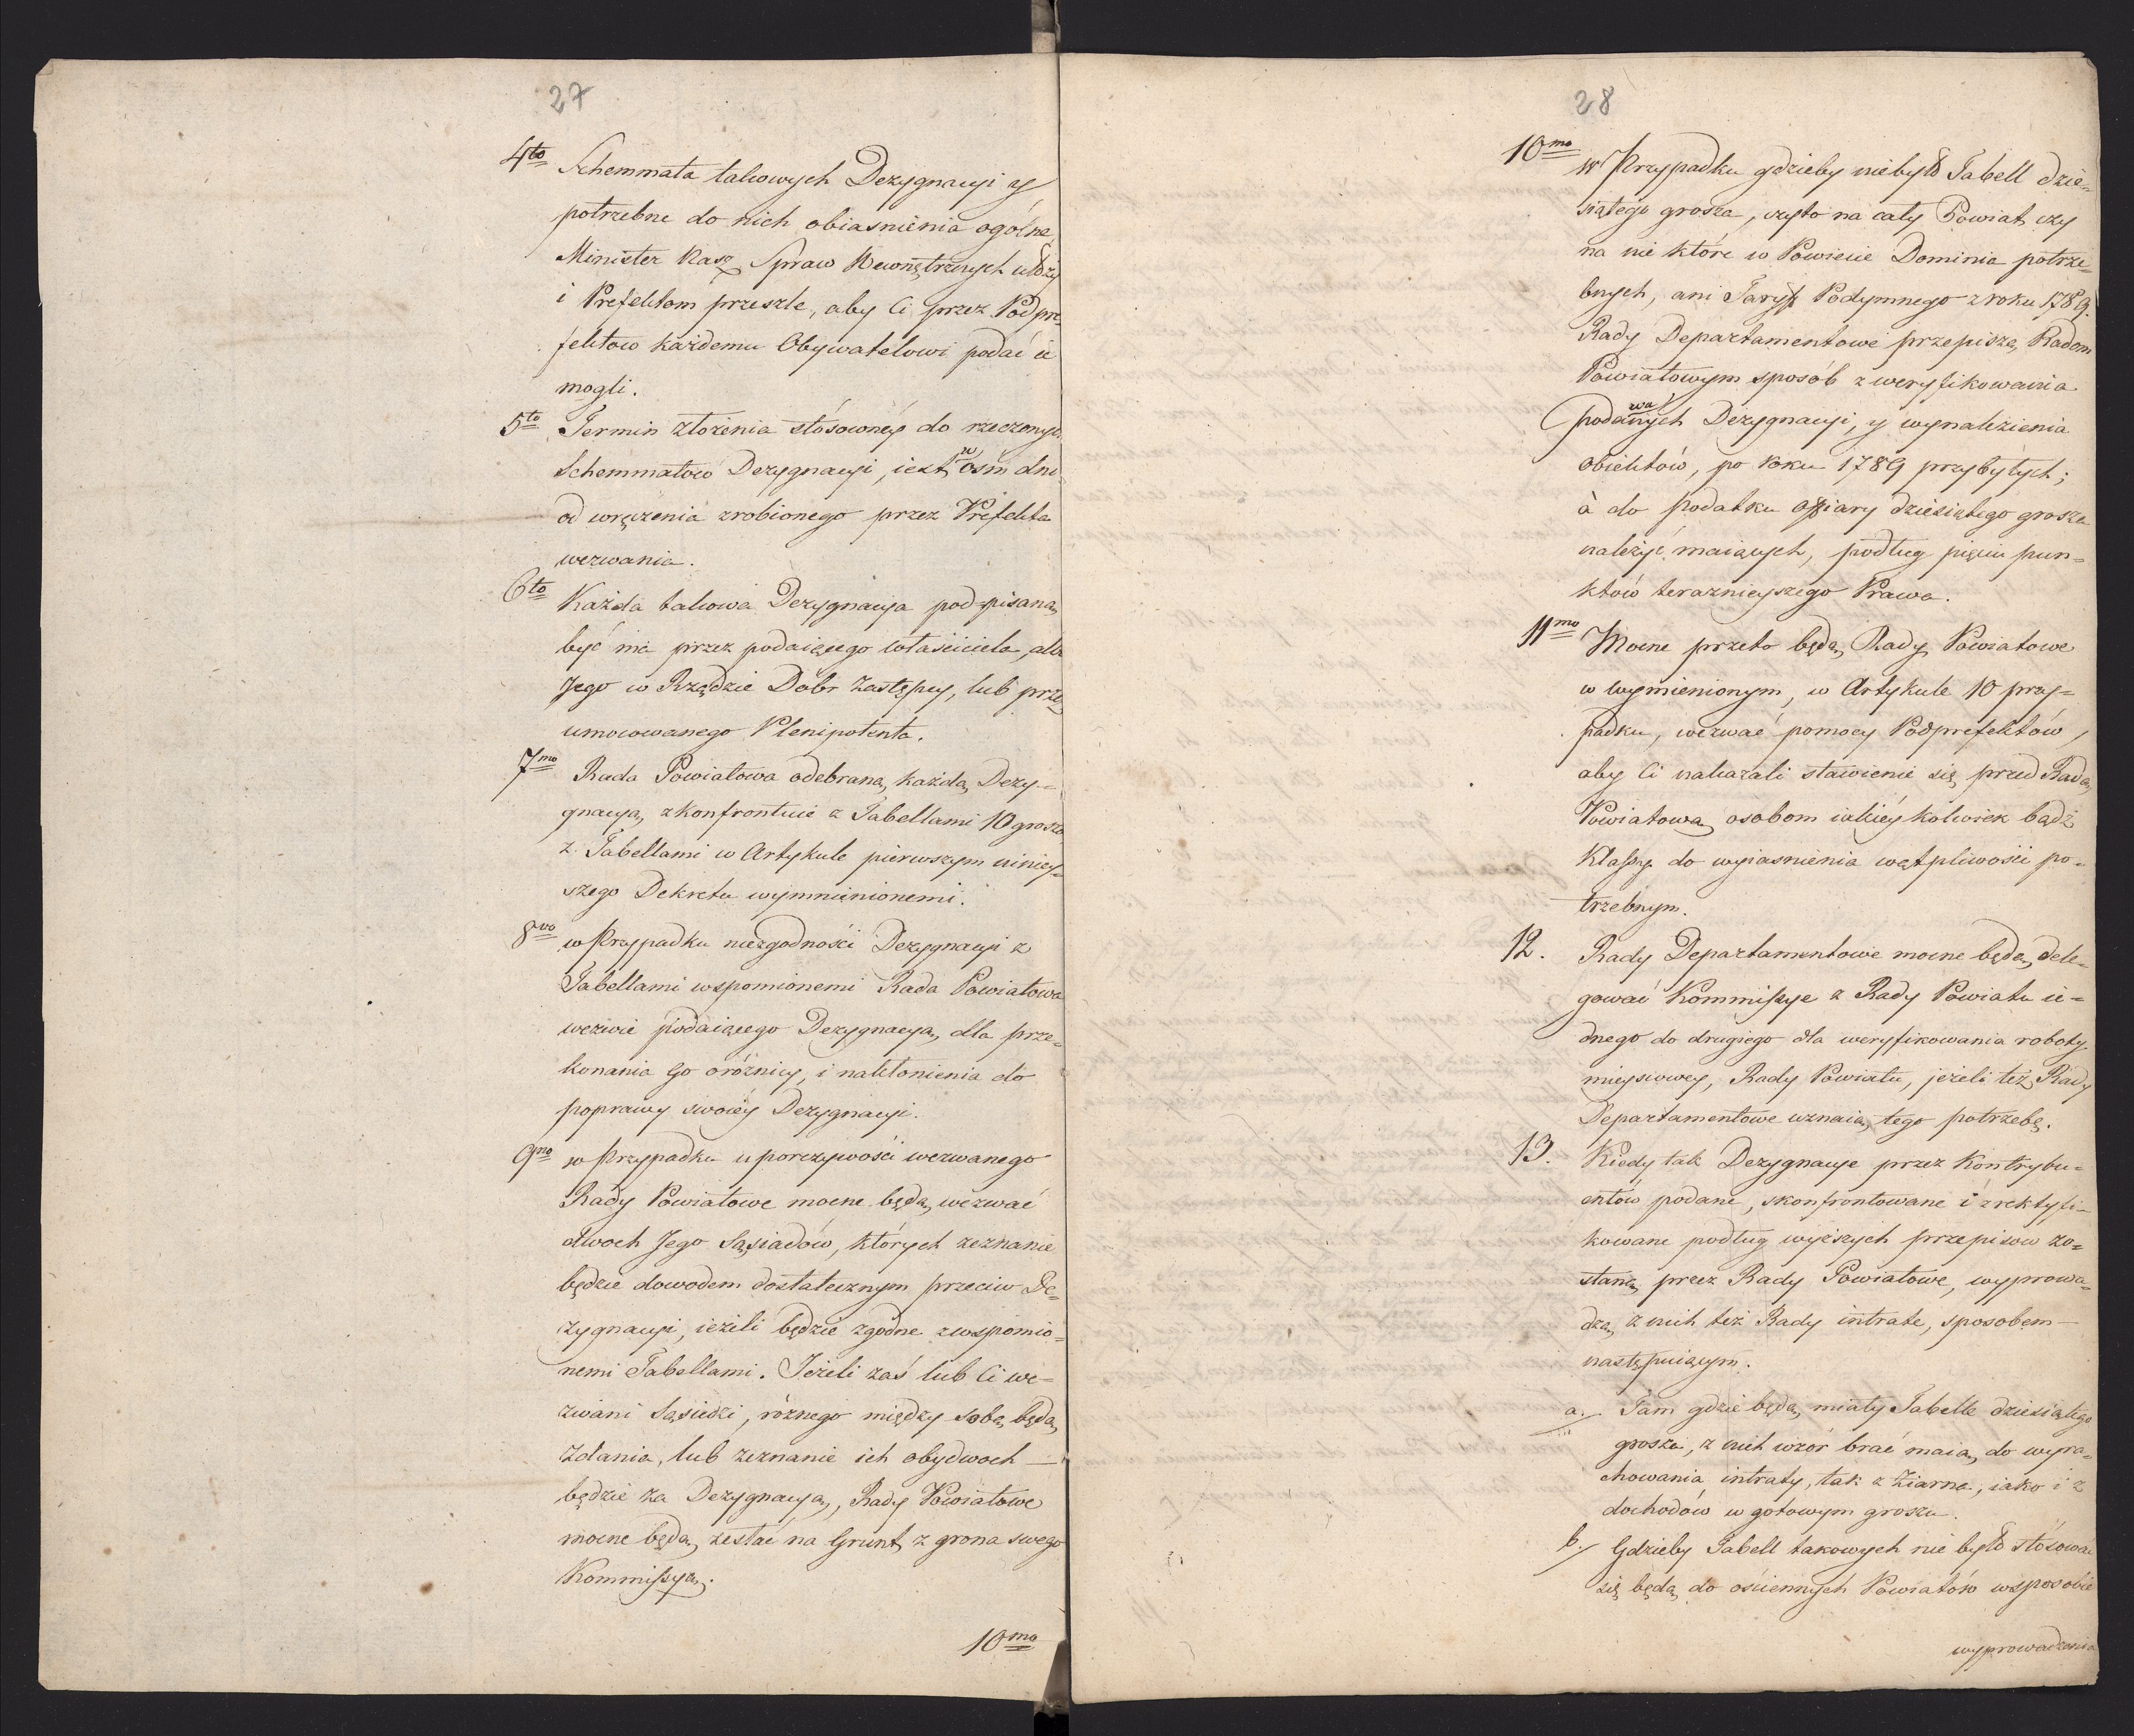 27
4to Schemmata takowych Dezygnacyi y
potrzebne do nich obiasnienia ogólne
Minister Nasz Spraw Wewnętrznych ułoży
i Prefektom przeszle, aby Ci przez Podpre=
fektow każdemu Obywatelowi podać ie
mogli.
5to Termin złożenia stósowney do rzeczonych
Schemmatow Dezygnacyi, iest w osm dni
od wręczenia zrobionego przez Prefekta
wezwania.
6to Każda takowa Dezygnacya podpisaną
być ma przez podaiącego właściciela, albo
Jego w Rządzie Dobr Zastępcy, lub przez
umocowanego Plenipotenta.
7mo Rada Powiatowa odebraną, każdą Dezy=
gnacyą, zkonfrontuie z Tabellami 10 grosza
z Tabellami w Artykule pierwszym niniey=
szego Dekretu wymnienionemi.
8vo w Przypadku niezgodności Dezygnacyi z
Tabellami wspomionemi Rada Powiatowa
wezwie podaiącego Dezygnacyą, dla prze=
konania Go oróżnicy, i nakłonienia do
poprawy swoiéy Dezygnacyi.
9no w Przypadku uporczywości wezwanego
Rady Powiatowe mocne będą, wezwać
dwoch Jego Sąsiadów, których zeznanie
będzie dowodem dostatecznym przeciw De=
zygnacyi, ieżeli będzie zgodne zwspomio=
nemi Tabellami. Jeżeli zaś lub Ci we=
zwani Sąsiedzi, róznego między sobą będą,
Zdania, lub zeznanie ich obydwoch —
będzie za Dezygnacyą, Rady Powiatowe
mocne będą, zesłać na Grunt z grona swego
Kommissyą.
10mo
28
10mo w Przypadku gdzieby niebyło Tabell dzie=
siątego grosza, czyto na cały Powiat czy
na nie które w Powiecie Dominia potrze=
bnych, ani Taryff Podymnego z roku 1789.
Rady Departamentowe przepiszą, Radom
Powiatowym sposób zweryfikowania
podawanych Dezygnacyi, y wynalezienia
obiektów, po roku 1789 przybyłych;
à do podatku offiary dziesiątego grosza
należyć maiących, podług pięciu pun=
któw terazniejszego Prawa.
11mo Mocne przeto będą, Rady Powiatowe
w wymienionym, w Artykule 10 przy=
padku, wezwać pomocy Podprefektów,
aby Ci nakazali stawienie się przed Radą,
Powiatową, osobom iakiéy kolwiek bądź
Klassy do wyiasnienia wątpliwości po=
trzebnym.
12. Rady Departamentowe mocne będą, dele=
gować Kommissye z Rady Powiatu ie=
dnego do drugiego dla weryfikowania roboty
mieyscowey, Rady Powiatu, jeżeli też Rady
Departamentowe uznaią, tego potrzebę.
13. Kiedy tak Dezygnacye przez Kontrybu=
entów podane, skonfrontowane i zrektyfi=
kowane podług wyższych przepisow zo=
staną, przez Rady Powiatowe, wyprowa=
dzą, z nich też Rady intratę, sposobem —
następuiącym.
a. Tam gdzie będą, miały Tabelle dziesiątego
grosza, z nich wzór brać maią, do wyra=
chowania intraty, tak z Ziarna, iako i z
dochodów w gotowym groszu.
b. Gdzieby Tabell takowych nie było stósować
się będą, do ościennych Powiatów wsposobie
wyprowadzenia